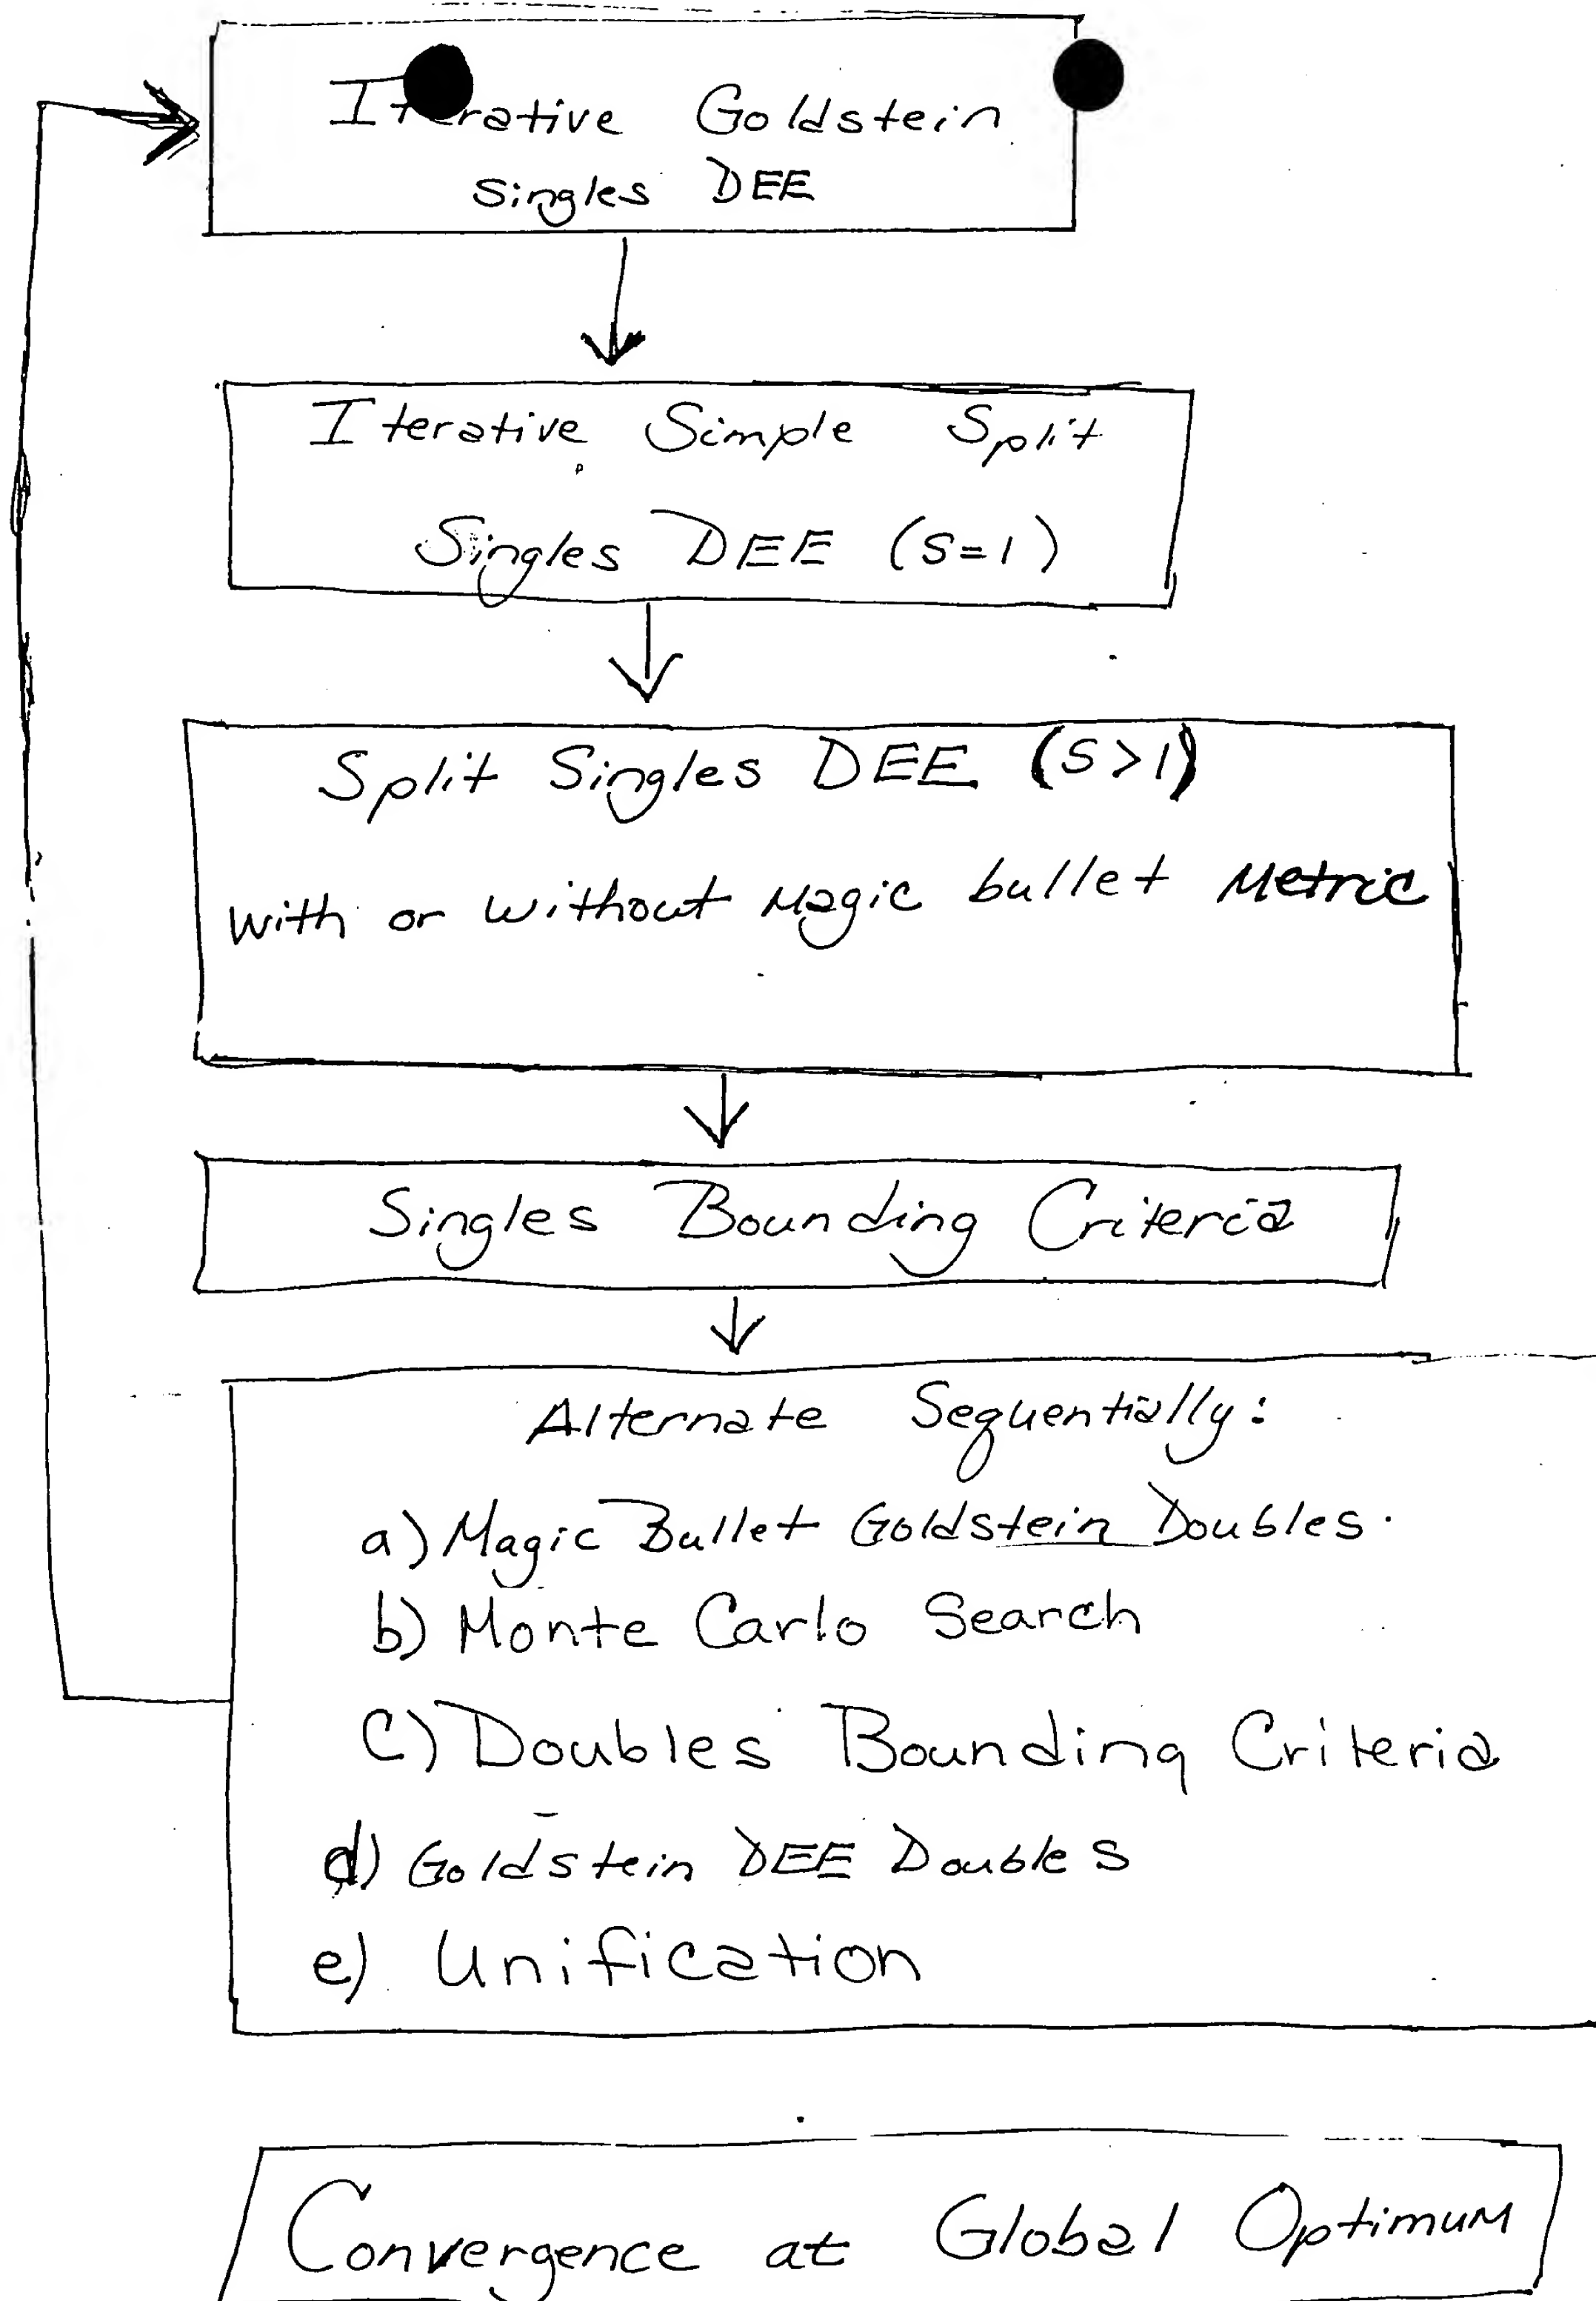 Iterative Goldstein
Singles DEE
Iterative Simple Split
Singles DEE (S=1)
Split Singles DEE (S>1)
with or without Magic bullet Metric
Singles Bounding Criteria
Alternate Sequentially:
a) Magic Bullet Goldstein Doubles.
b) Monte Carlo Search
c) Doubles Bounding Criteria
d) Goldstein DEE Doubles
e) Unification
Convergence at Global Optimum